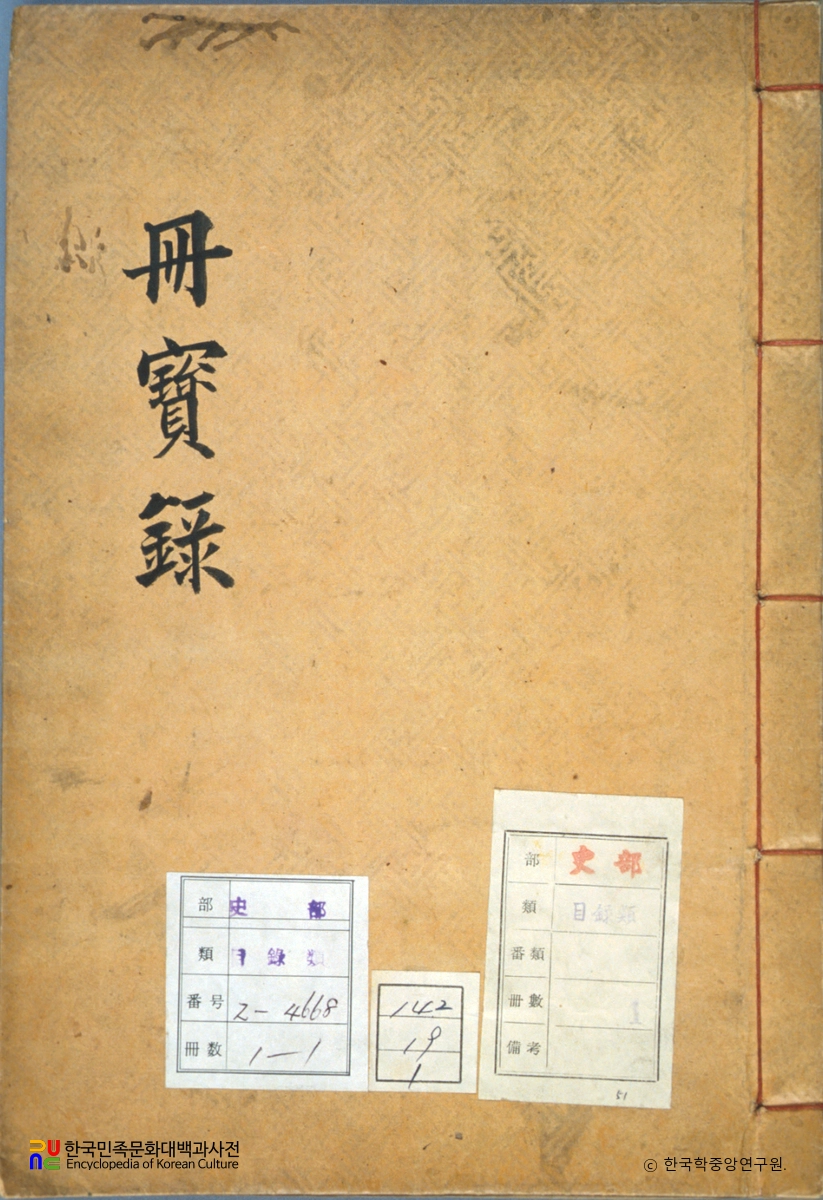 冊寶錄
部 史部
類 目錄類
番号 2-4668
冊数 1-1
142
19
1
部 史部
類 目錄類
番類
冊數 1
備考
51
한국민족문화대백과사전
Encyclopedia of Korean Culture
© 한국학중앙연구원.